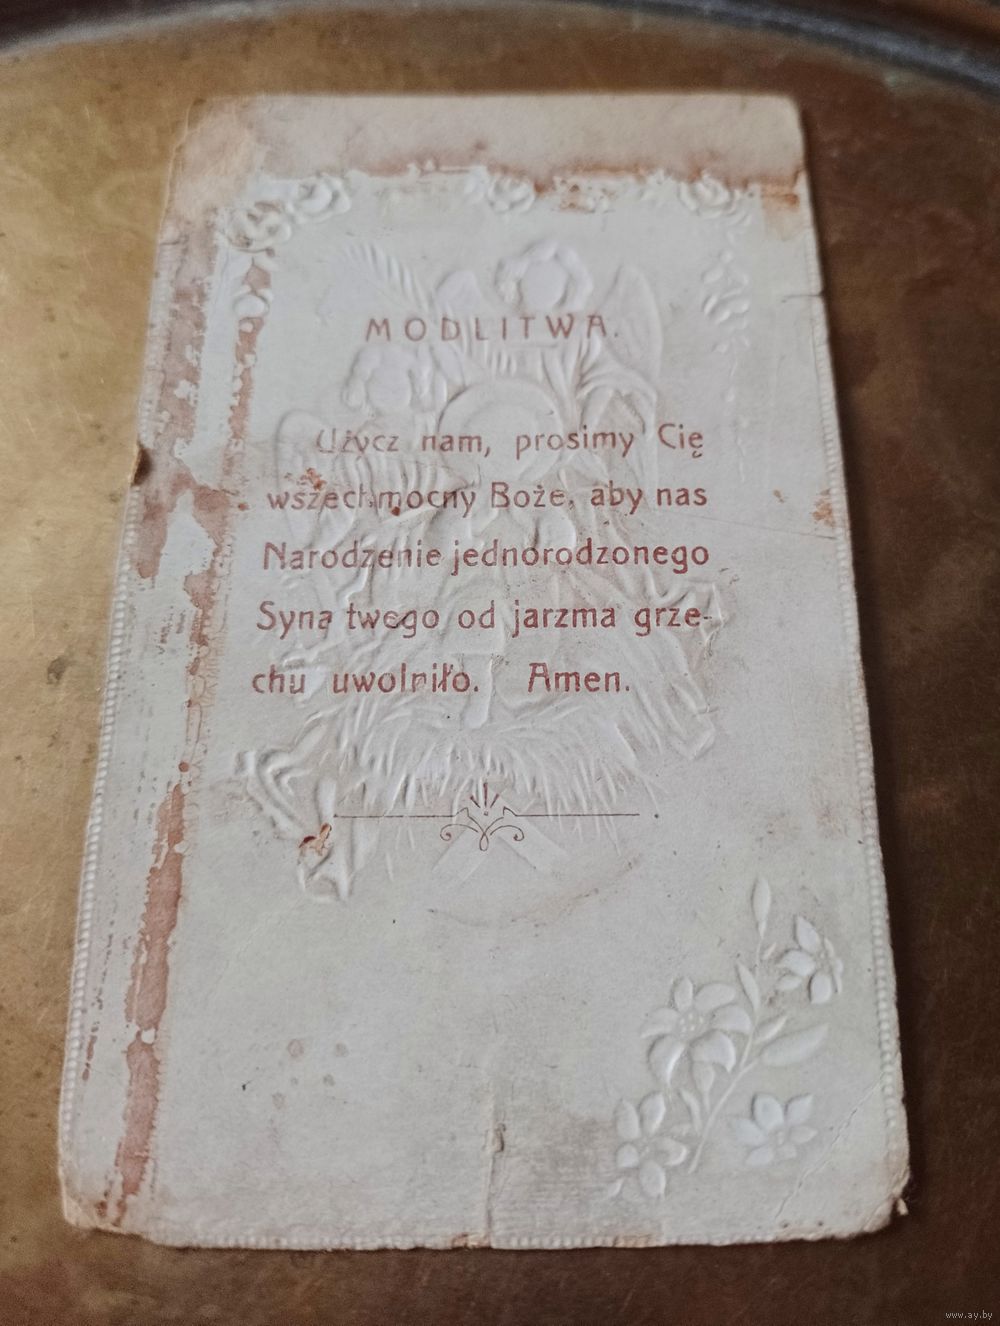 MODLITWA.
Użycz nam, prosimy Cię
wszechmocny Boże, aby nas
Narodzenie jednorodzonego
Syna twego od jarzma grze-
chu uwolniło. Amen.
www.ay.by